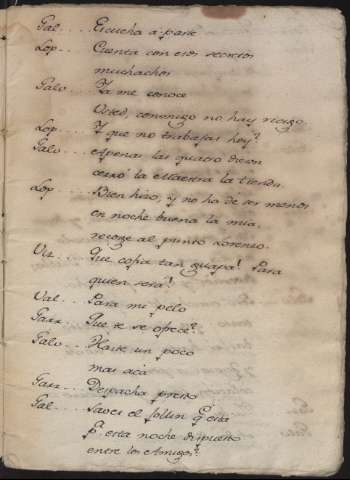 Gal.... Escucha a parte
Lop... Cuenta con esos secretos
muchachos
Galo.... Ya me conoce
Usted, conmigo no hay riesgo.
Lop... Y que no trabajas hoy?
Galo... Apenas las quatro dieron
cerró la Maestra la tienda.
Lop... Bien hizo, y no ha de ser menos
en noche buena la mia.
recoge al punto Lorenzo.
Que cofia tan guapa! Para
quien será?
Val... Para mi pelo
Garz... Que te se ofrece?
Galo... Hazte un poco
mas acá
Garz... Despacha presto
Gal... Saves el follin q.e está
p.a esta noche dispuesto
entre los Amigos?